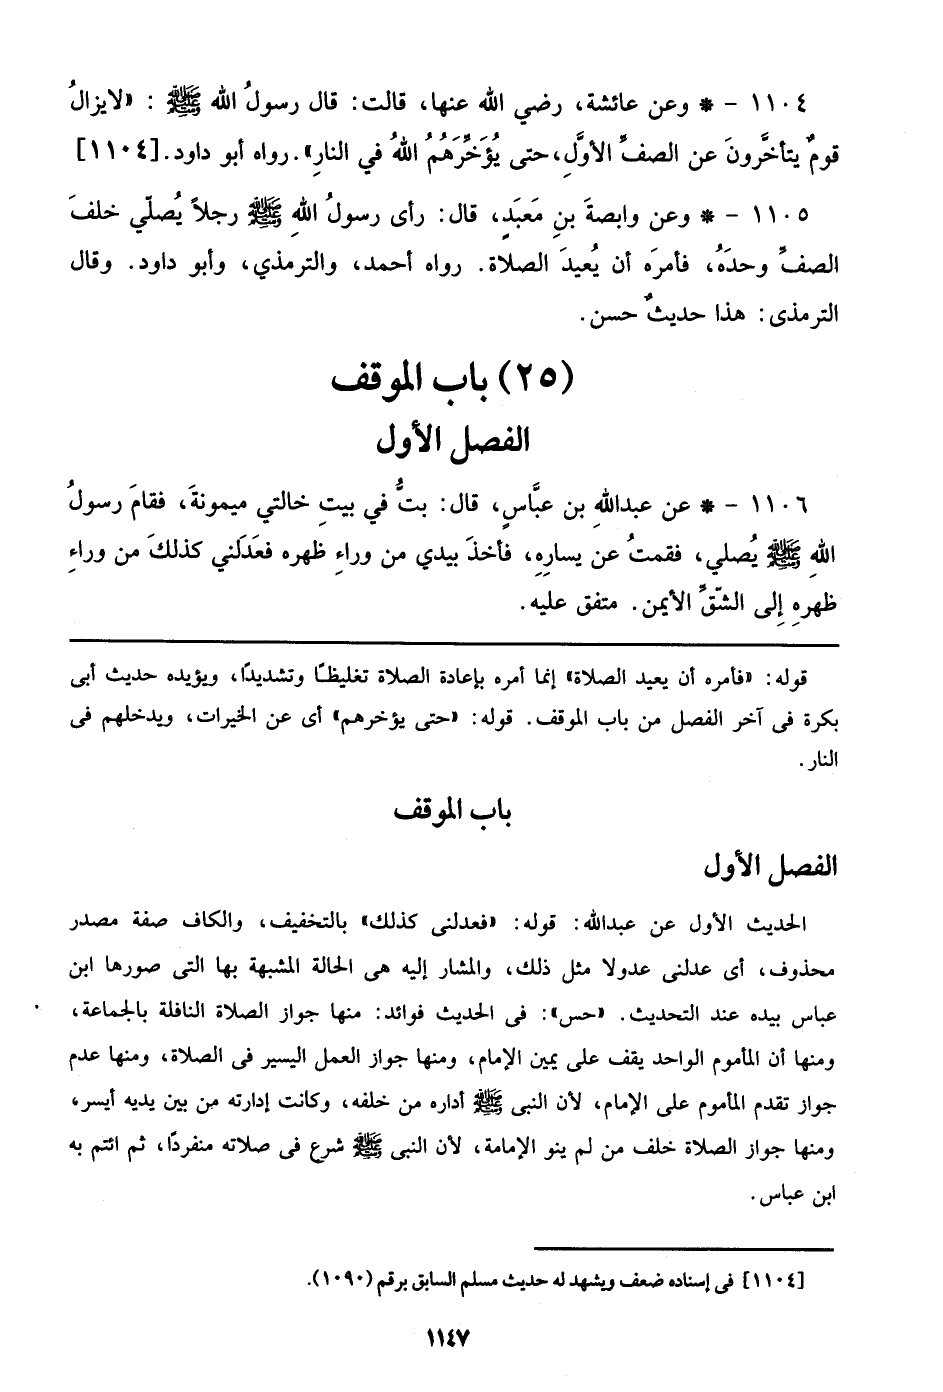 ١١٠٤ - * وعن عائشة، رضي الله عنها، قالت: قال رسولُ الله ﷺ : «لايزالُ
قومٌ يتأخَّرونَ عن الصفِّ الأوَّلِ،حتى يُؤَخِّرَهُمُ اللهُ في النارِ».رواه أبو داود.[١١٠٤]
١١٠٥ - * وعن وابصةَ بنِ مَعبَدٍ، قال: رأى رسولُ اللهِ ﷺ رجلاً يُصلّي خلفَ
الصفِّ وحدَهُ، فأمرَه أن يُعيدَ الصلاة. رواه أحمد، والترمذي، وأبو داود. وقال
الترمذى: هذا حديثٌ حسن.
(٢٥) باب الموقف
الفصل الأول
١١٠٦ - * عن عبداللهِ بن عبَّاسٍ، قال: بتُّ في بيتِ خالتي ميمونةَ، فقامَ رسولُ
اللهِ ﷺ يُصلي، فقمتُ عن يسارِهِ، فأخذَ بيدي من وراءِ ظهره فعَدَلني كذلكَ من وراءِ
ظهرِهِ إلى الشّقِّ الأيمن. متفق عليه.
قوله: «فأمره أن يعيد الصلاة» إنما أمره بإعادة الصلاة تغليظًا وتشديدًا، ويؤيده حديث أبى
بكرة فى آخر الفصل من باب الموقف. قوله: «حتى يؤخرهم» أى عن الخيرات، ويدخلهم فى
النار.
باب الموقف
الفصل الأول
الحديث الأول عن عبدالله: قوله: «فعدلنى كذلك» بالتخفيف، والكاف صفة مصدر
محذوف، أى عدلنى عدولا مثل ذلك، والمشار إليه هى الحالة المشبهة بها التى صورها ابن
عباس بيده عند التحديث. «حس»: فى الحديث فوائد: منها جواز الصلاة النافلة بالجماعة،
ومنها أن المأموم الواحد يقف على يمين الإمام، ومنها جواز العمل اليسير فى الصلاة، ومنها عدم
جواز تقدم المأموم على الإمام، لأن النبى ﷺ أداره من خلفه، وكانت إدارته من بين يديه أيسر،
ومنها جواز الصلاة خلف من لم ينو الإمامة، لأن النبى ﷺ شرع فى صلاته منفردًا، ثم ائتم به
ابن عباس.
[١١٠٤] فى إسناده ضعف ويشهد له حديث مسلم السابق برقم (١٠٩٠).
١١٤٧